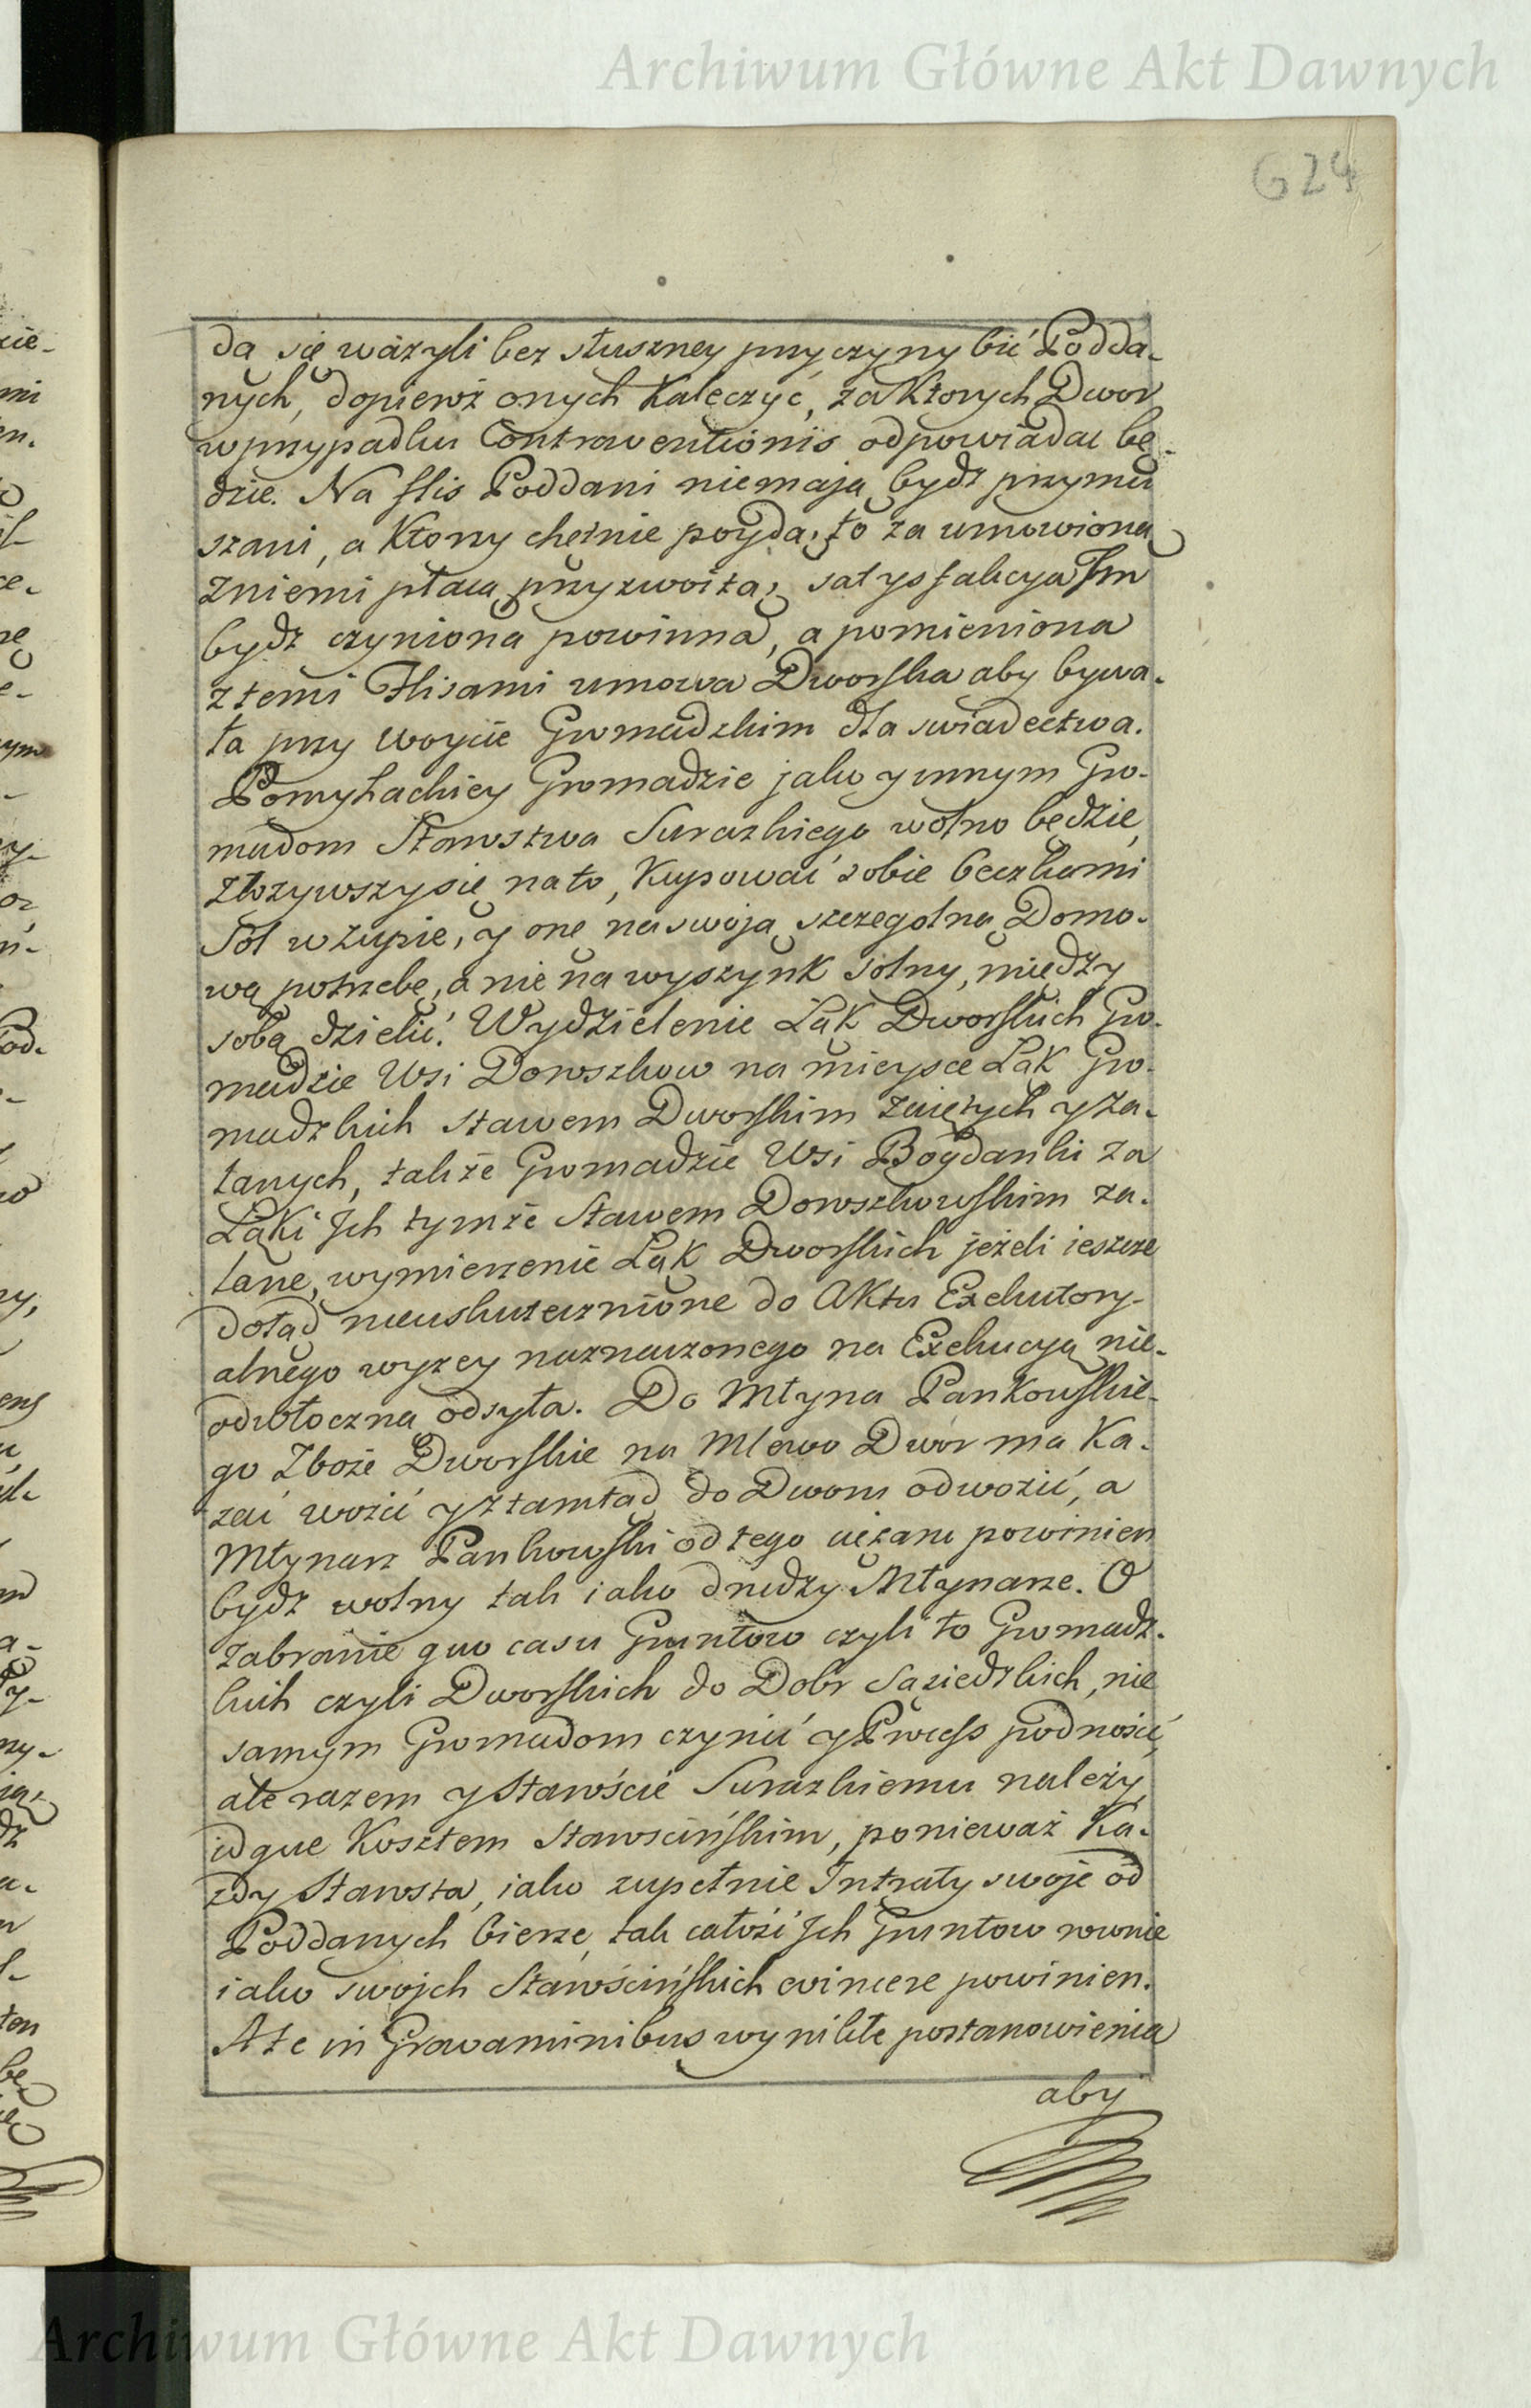 Archiwum Główne Akt Dawnych
624
da się ważyli bez słuszney przyczyny bić Podda-
nych, dopieroż onych Kaleczyć, za Ktorych Dwor
w przypadku Contraventionis odpowiadać bę-
dzie. Na flis Poddani niemają bydź przymu
szani, a Ktorzy chetnie poyda, to za umowioną
zniemi płacą przyzwoitą, satysfakcya Im
bydź czyniona powinna, a pomieniona
z temi Flisami umowa Dworska aby bywa-
ła przy Woycie Gromadzkim dla swiadectwa.
Pomyhackiey Gromadzie jako y innym Gro-
madom Starostwa Surazkiego wolno będzie,
złożywszysię nato, Kupować sobie beczkami
Sol w Zupie, y onę na swoją szczegolną Domo-
wą potrzebę, a nie na wyszynk solny, między
sobą dzielić. Wydzielenie Łąk Dworskich Gro-
madzie Wsi Dorwszkow na mieysce Łąk Gro-
madzkich stawem Dworskim zaiętych y za-
lanych, także Gromadzie Wsi Bogdanki za
Łąki Jch tymże Stawem Dorwszkowskim za-
lane, wymierzenie Łąk Dworskich jeżeli ieszcze
dotąd nieuskutecznione do Aktu Exekutory-
alnego wyżey naznaczonego na Exekucyą nie-
odwłoczną odsyła. Do Młyna Pankowskie-
go Zboże Dworskie na Mlewo Dwór ma Ka-
zać wozić y ztamtąd do Dworu odwozić, a
Młynarz Pankowski od tego ciężaru powinien
bydź wolny tak iako drudzy Młynarze. O
zabranie quo casu Gruntow czyli to Gromadz-
kich czyli Dworskich do Dobr Sąsiedzkich, nie
samym Gromadom czynić y Process podnosić,
ale razem y Starościе Surazkiemu należy,
idque Kosztem Starościńskim, ponieważ Ka-
żdy Starosta, iako zupełnie Intraty swoje od
Poddanych bierze, tak całość Jch Gruntow rownie
iako swojch Starościńskich evincere powinien.
A te in Gravaminibus wynikłe postanowienia
aby
Archiwum Główne Akt Dawnych